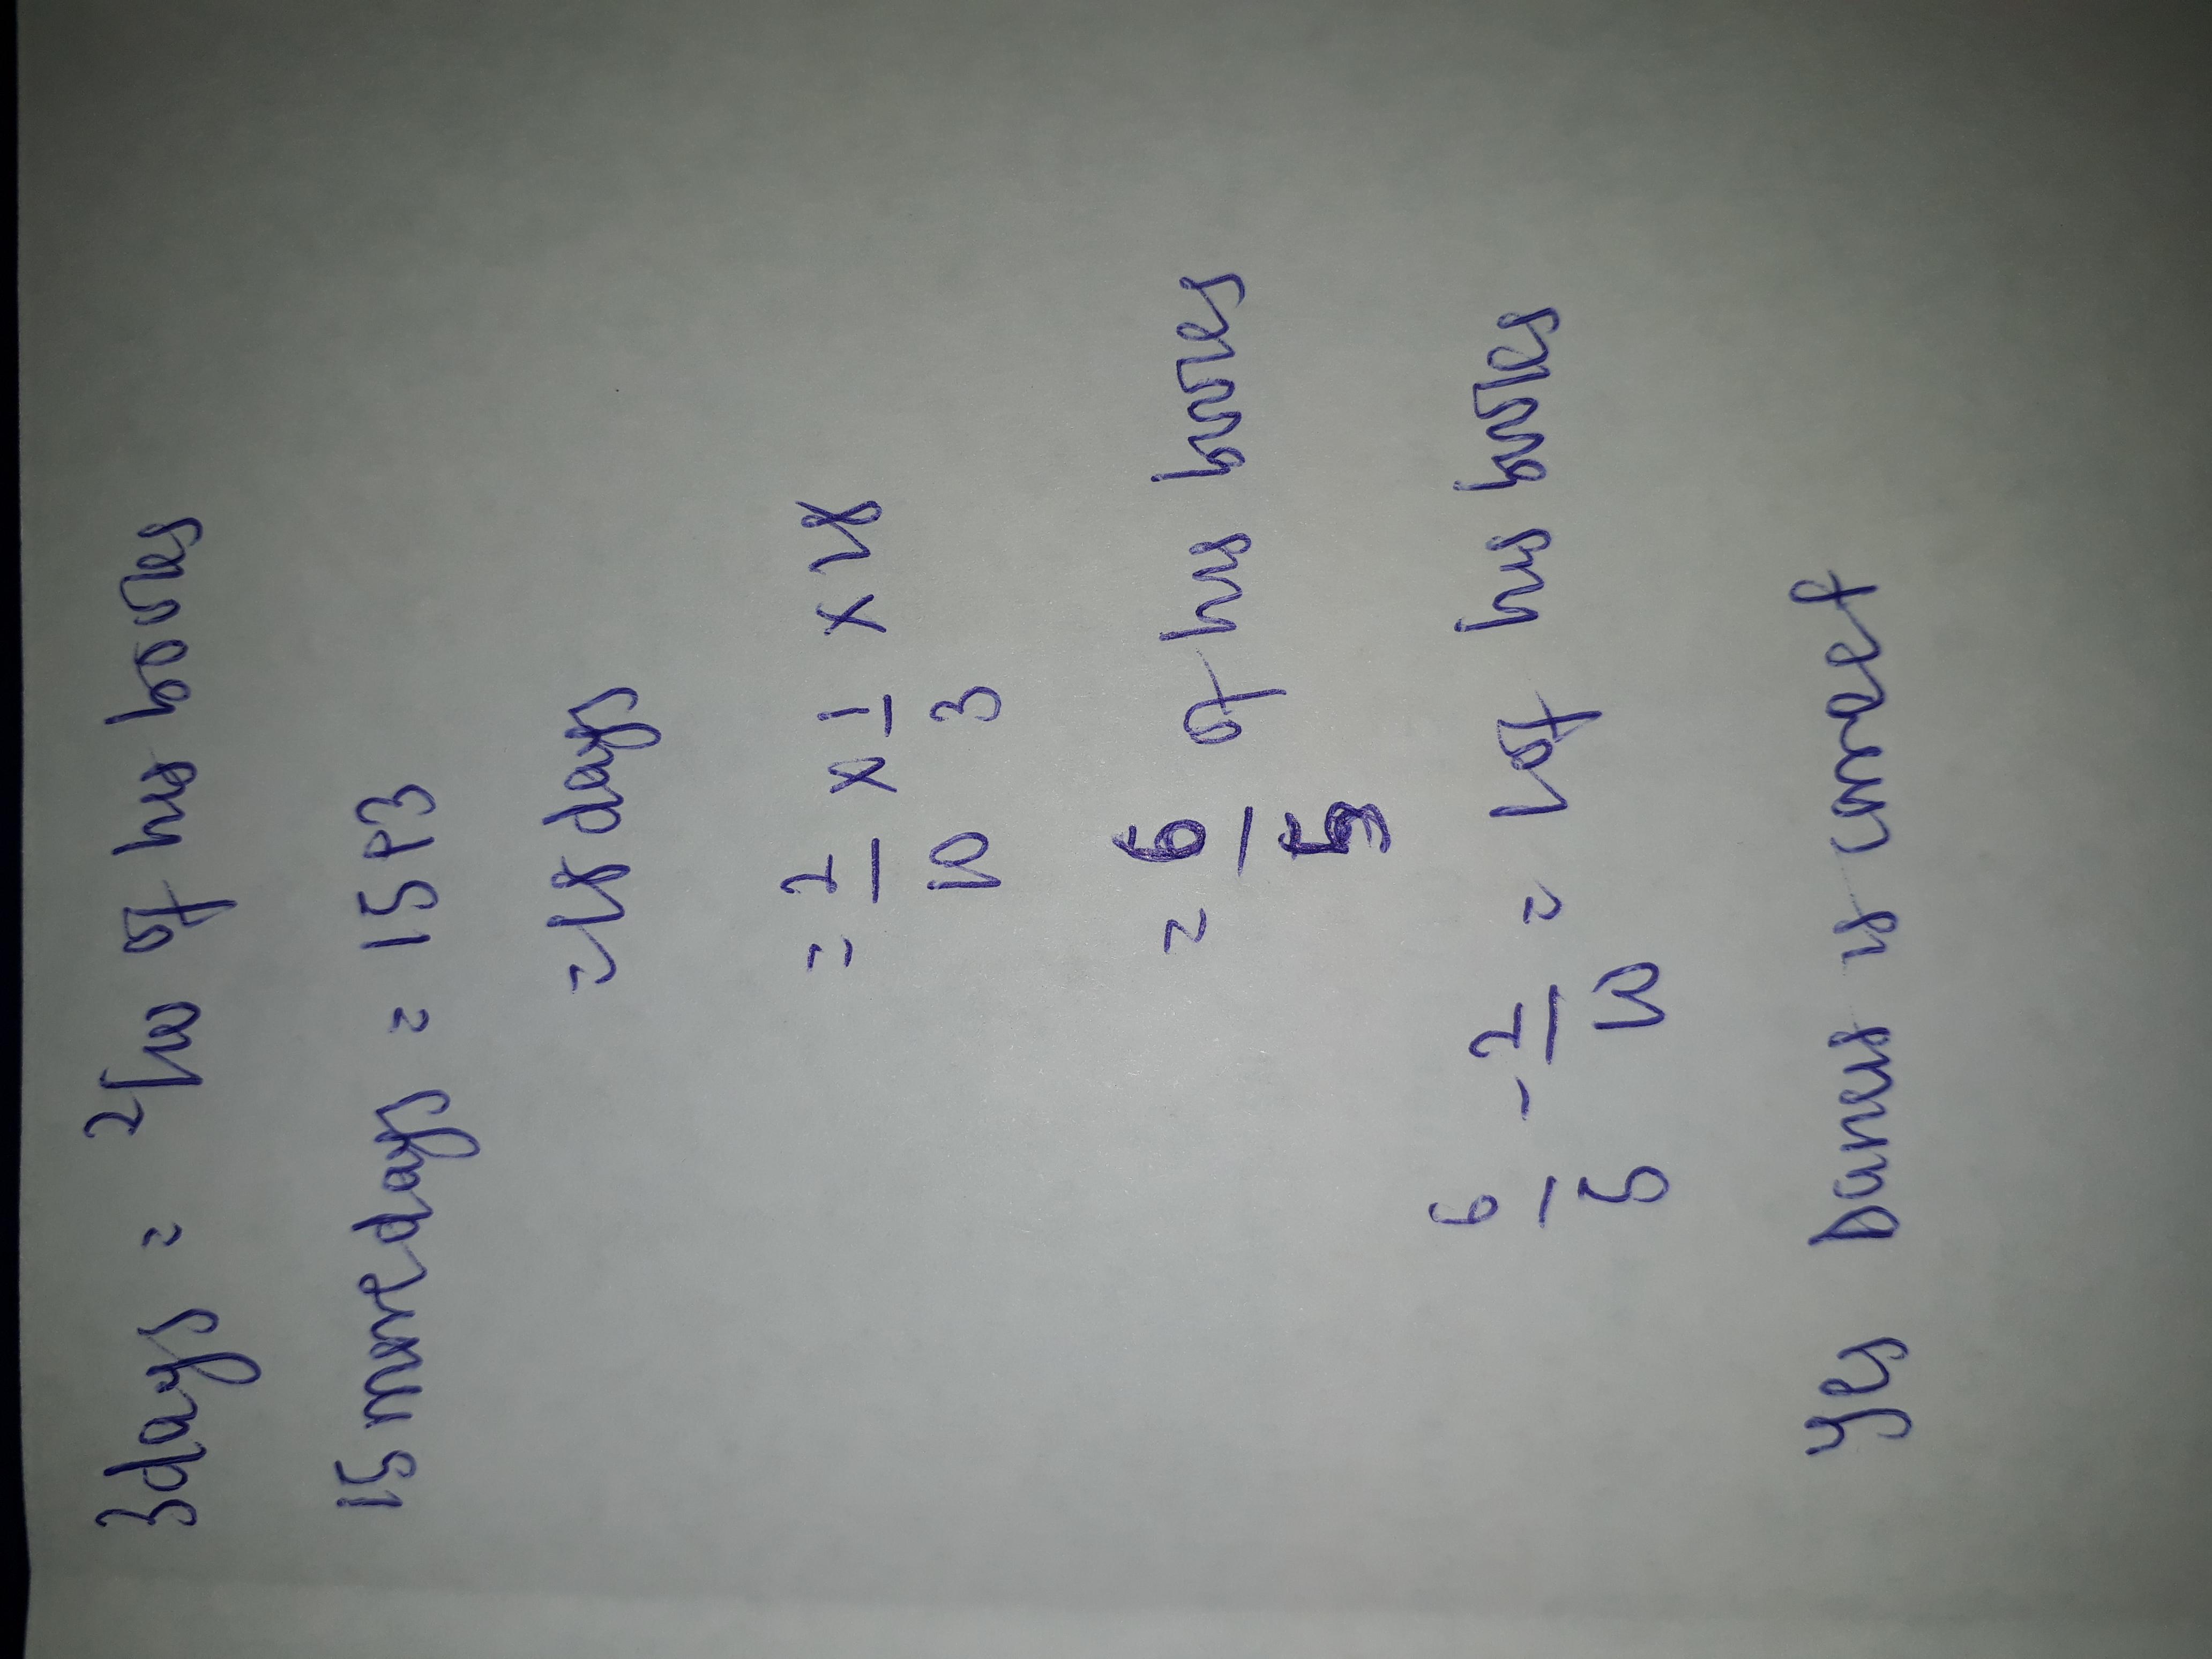 3days = 2/10 of his bones
15 more days = 15+3
= 18 days
= 2/10 x 1/3 x 18
= 6/5 of his bones
6/5 - 2/10 = 1 of his bones
yes Danas is correct